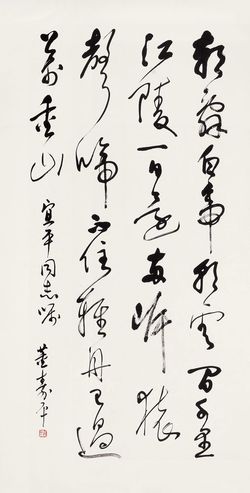 朝辭白帝彩雲間千里
江陵一日還兩岸猿
聲啼不住輕舟已過
萬重山
宜平同志嘱
董寿平